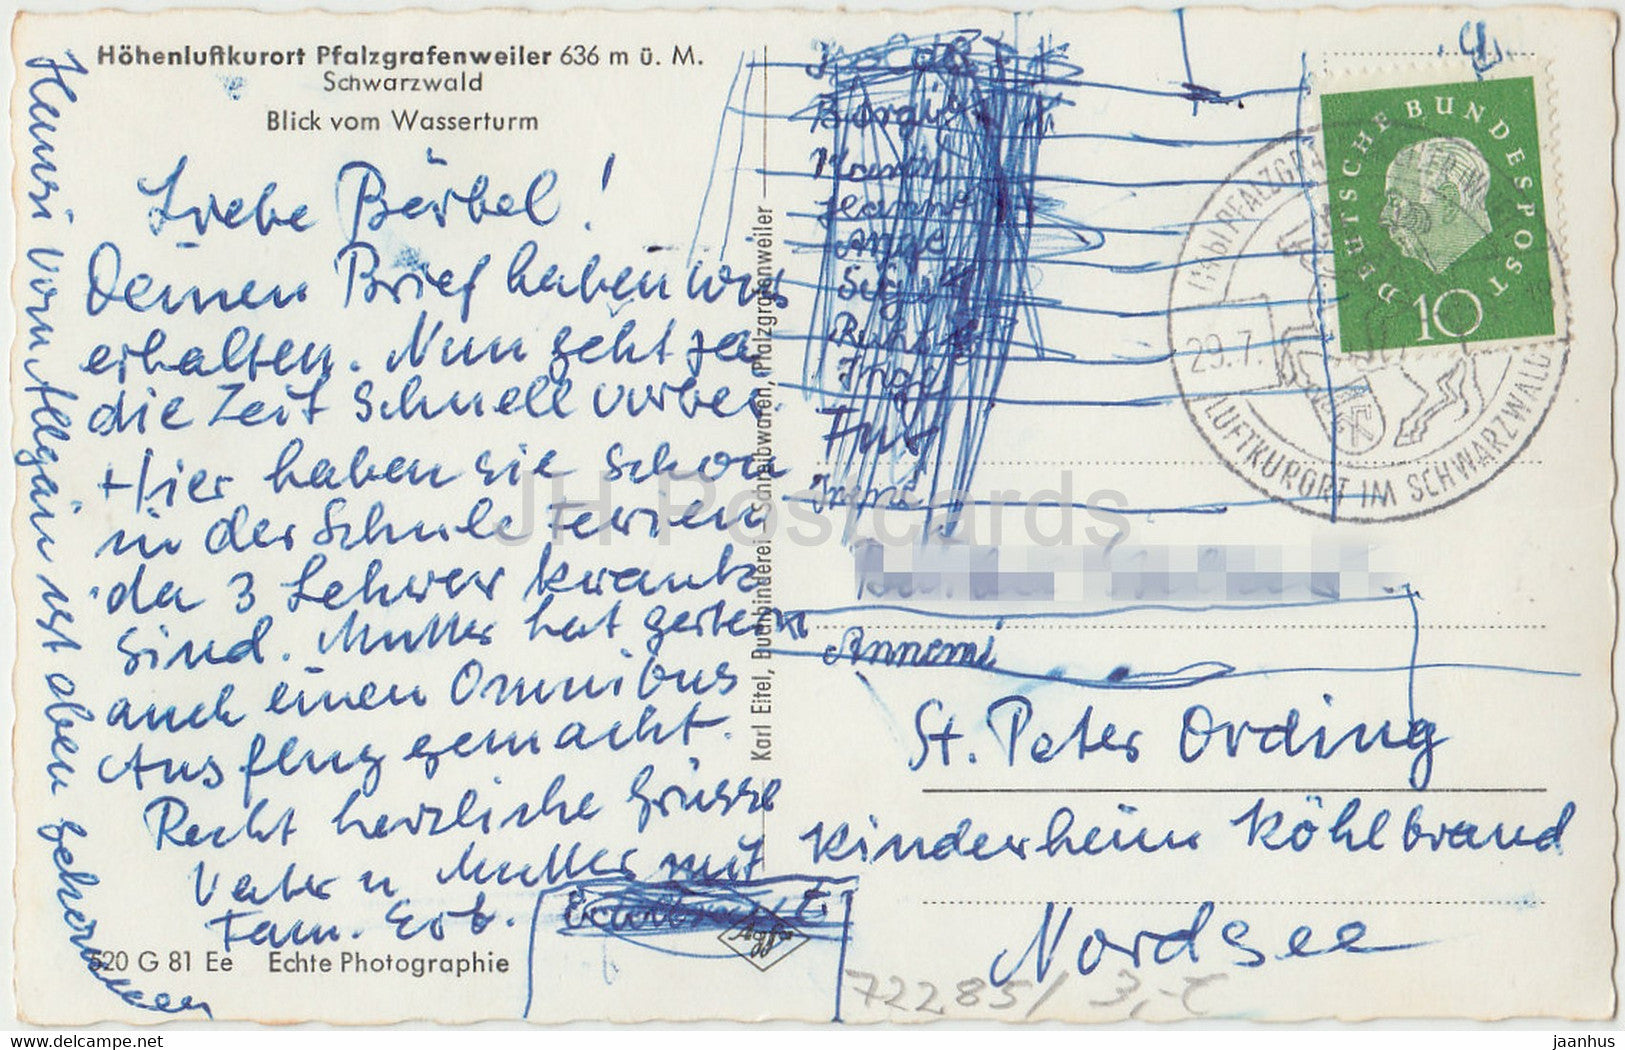 Höhenluftkurort Pfalzgrafenweiler 636 m ü. M.
Schwarzwald
Blick vom Wasserturm
Liebe Bärbel!
Deinen Brief haben wir
erhalten. Nun geht ja
die Zeit schnell vorbei.
Hier haben sie schon
in der Schule Ferien
da 3 Lehrer krank
sind. Mutter hat gestern
auch einen Omnibus
Ausflug gemacht.
Recht herzliche Grüsse
Vater u Mutter mit
Fam. Erb.
Hansi vom Allgäu ist oben gekommen
520 G 81 Ee Echte Photographie
Karl Eitel, Buchbinderei - Schreibwaren, Pfalzgrafenweiler
Agfa
Karin
Ange
Ruth
Inge
Annemi
St. Peter Ording
Kinderheim Köhlbrand
Nordsee
DEUTSCHE BUNDESPOST
10
PFALZGRA
29.7.
LUFTKURORT IM SCHWARZWALD
72285/ 3,-€
JH Postcards
www.delcampe.net
jaanhus